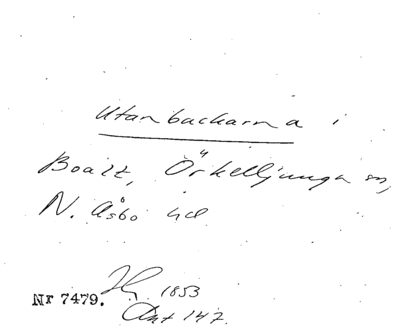 Utanbackarna i
Boalt, Örkelljunga sn,
N. Åsbo hd
Nr 7479. 1853
Ant 147